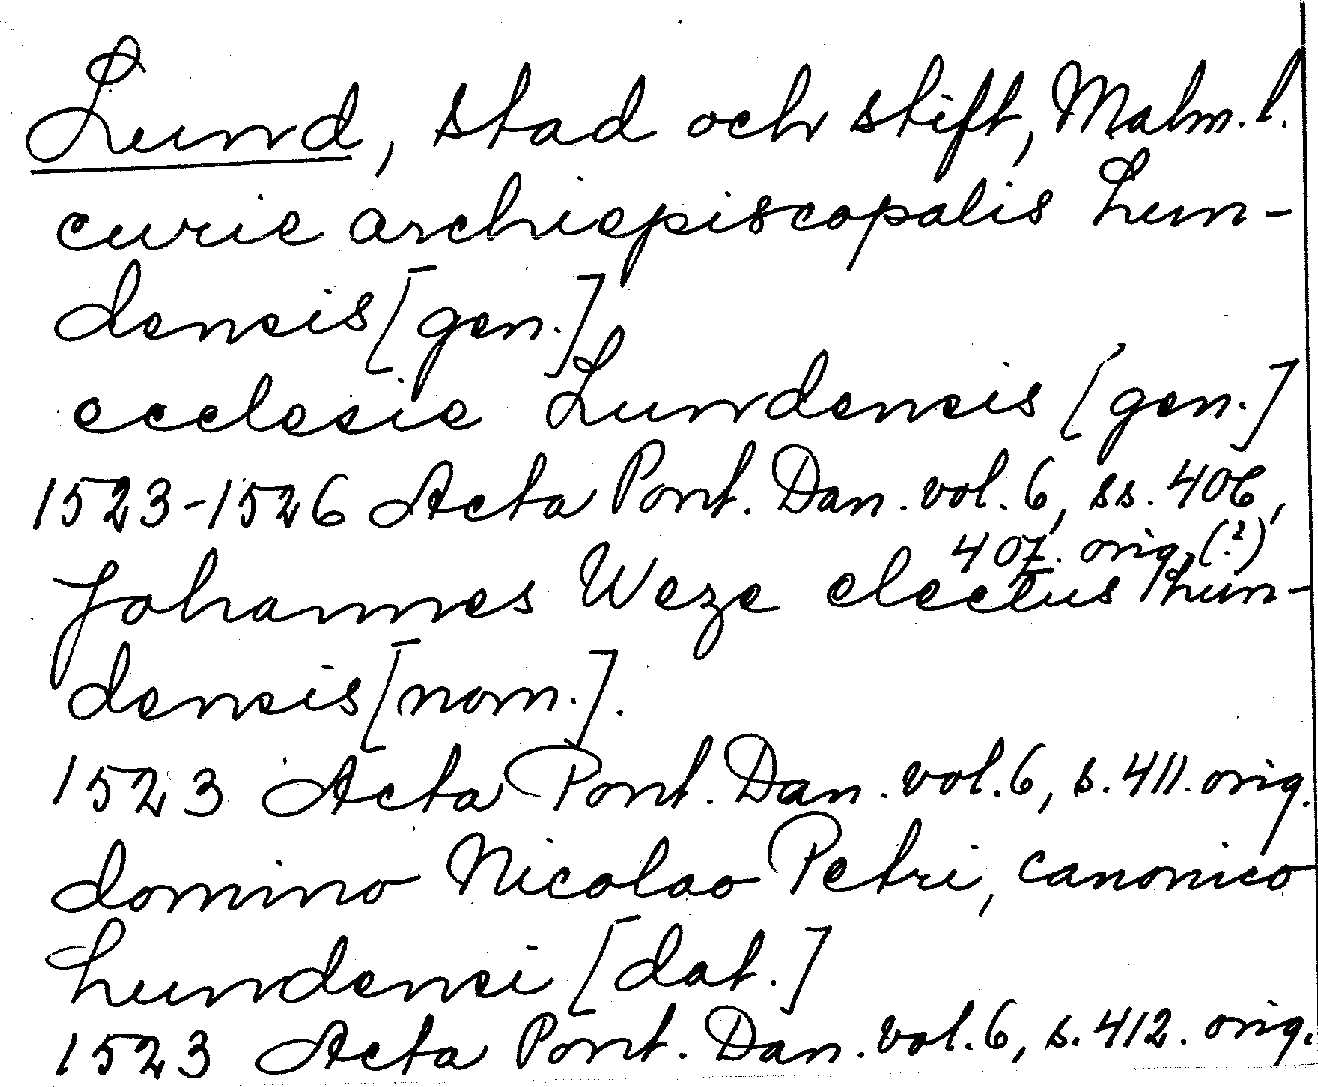 Lund, stad och stift, Malm. l.
curie archiepiscopalis Lun-
densis [gen.]
ecclesie Lundensis [gen.]
1523-1526 Acta Pont. Dan. vol. 6, ss. 406,
407. orig. (?)
Johannes Weze electus Lun-
densis [nom.].
1523 Acta Pont. Dan. vol. 6, s. 411. orig.
domino Nicolao Petri, canonico
Lundensi [dat.]
1523 Acta Pont. Dan. vol. 6, s. 412. orig.